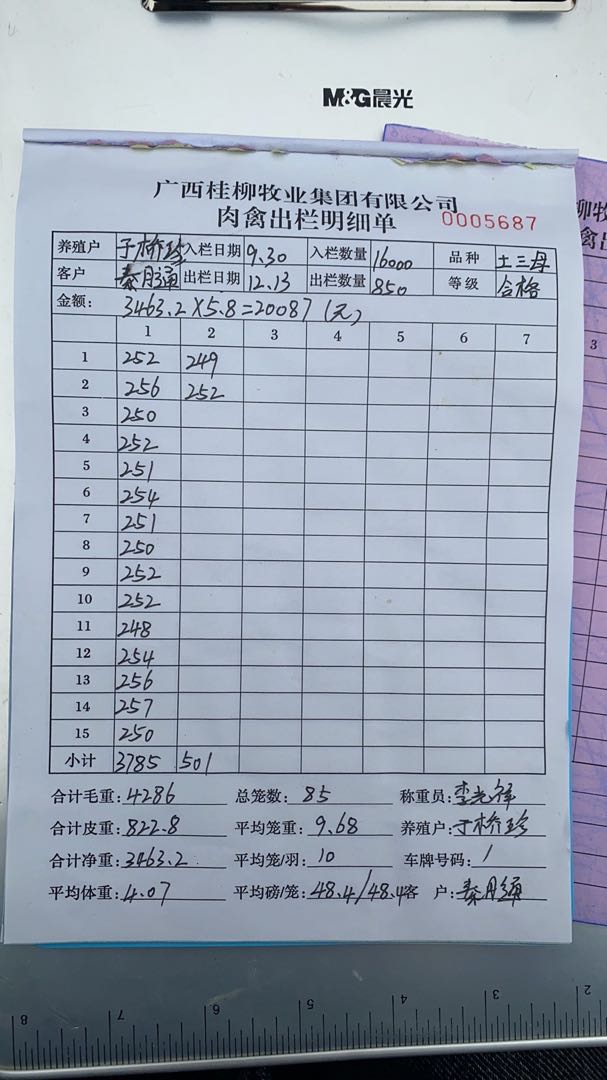 M&G晨光
广西桂柳牧业集团有限公司
肉禽出栏明细单 0005687
养殖户 于桥珍 入栏日期 9.30 入栏数量 16000 品种 土三母
客户 秦月通 出栏日期 12.13 出栏数量 850 等级 合格
金额: 3463.2×5.8=20087(元)
1 2 3 4 5 6 7
1 252 249
2 256 252
3 250
4 252
5 251
6 254
7 251
8 250
9 252
10 252
11 248
12 254
13 256
14 257
15 250
小计 3785 501
合计毛重: 4286 总笼数: 85 称重员: 李光祥
合计皮重: 822.8 平均笼重: 9.68 养殖户: 于桥珍
合计净重: 3463.2 平均笼/羽: 10 车牌号码: /
平均体重: 4.07 平均磅/笼: 48.4/48.4 客 户: 秦月通
3
8 7 6 5 4 3 2